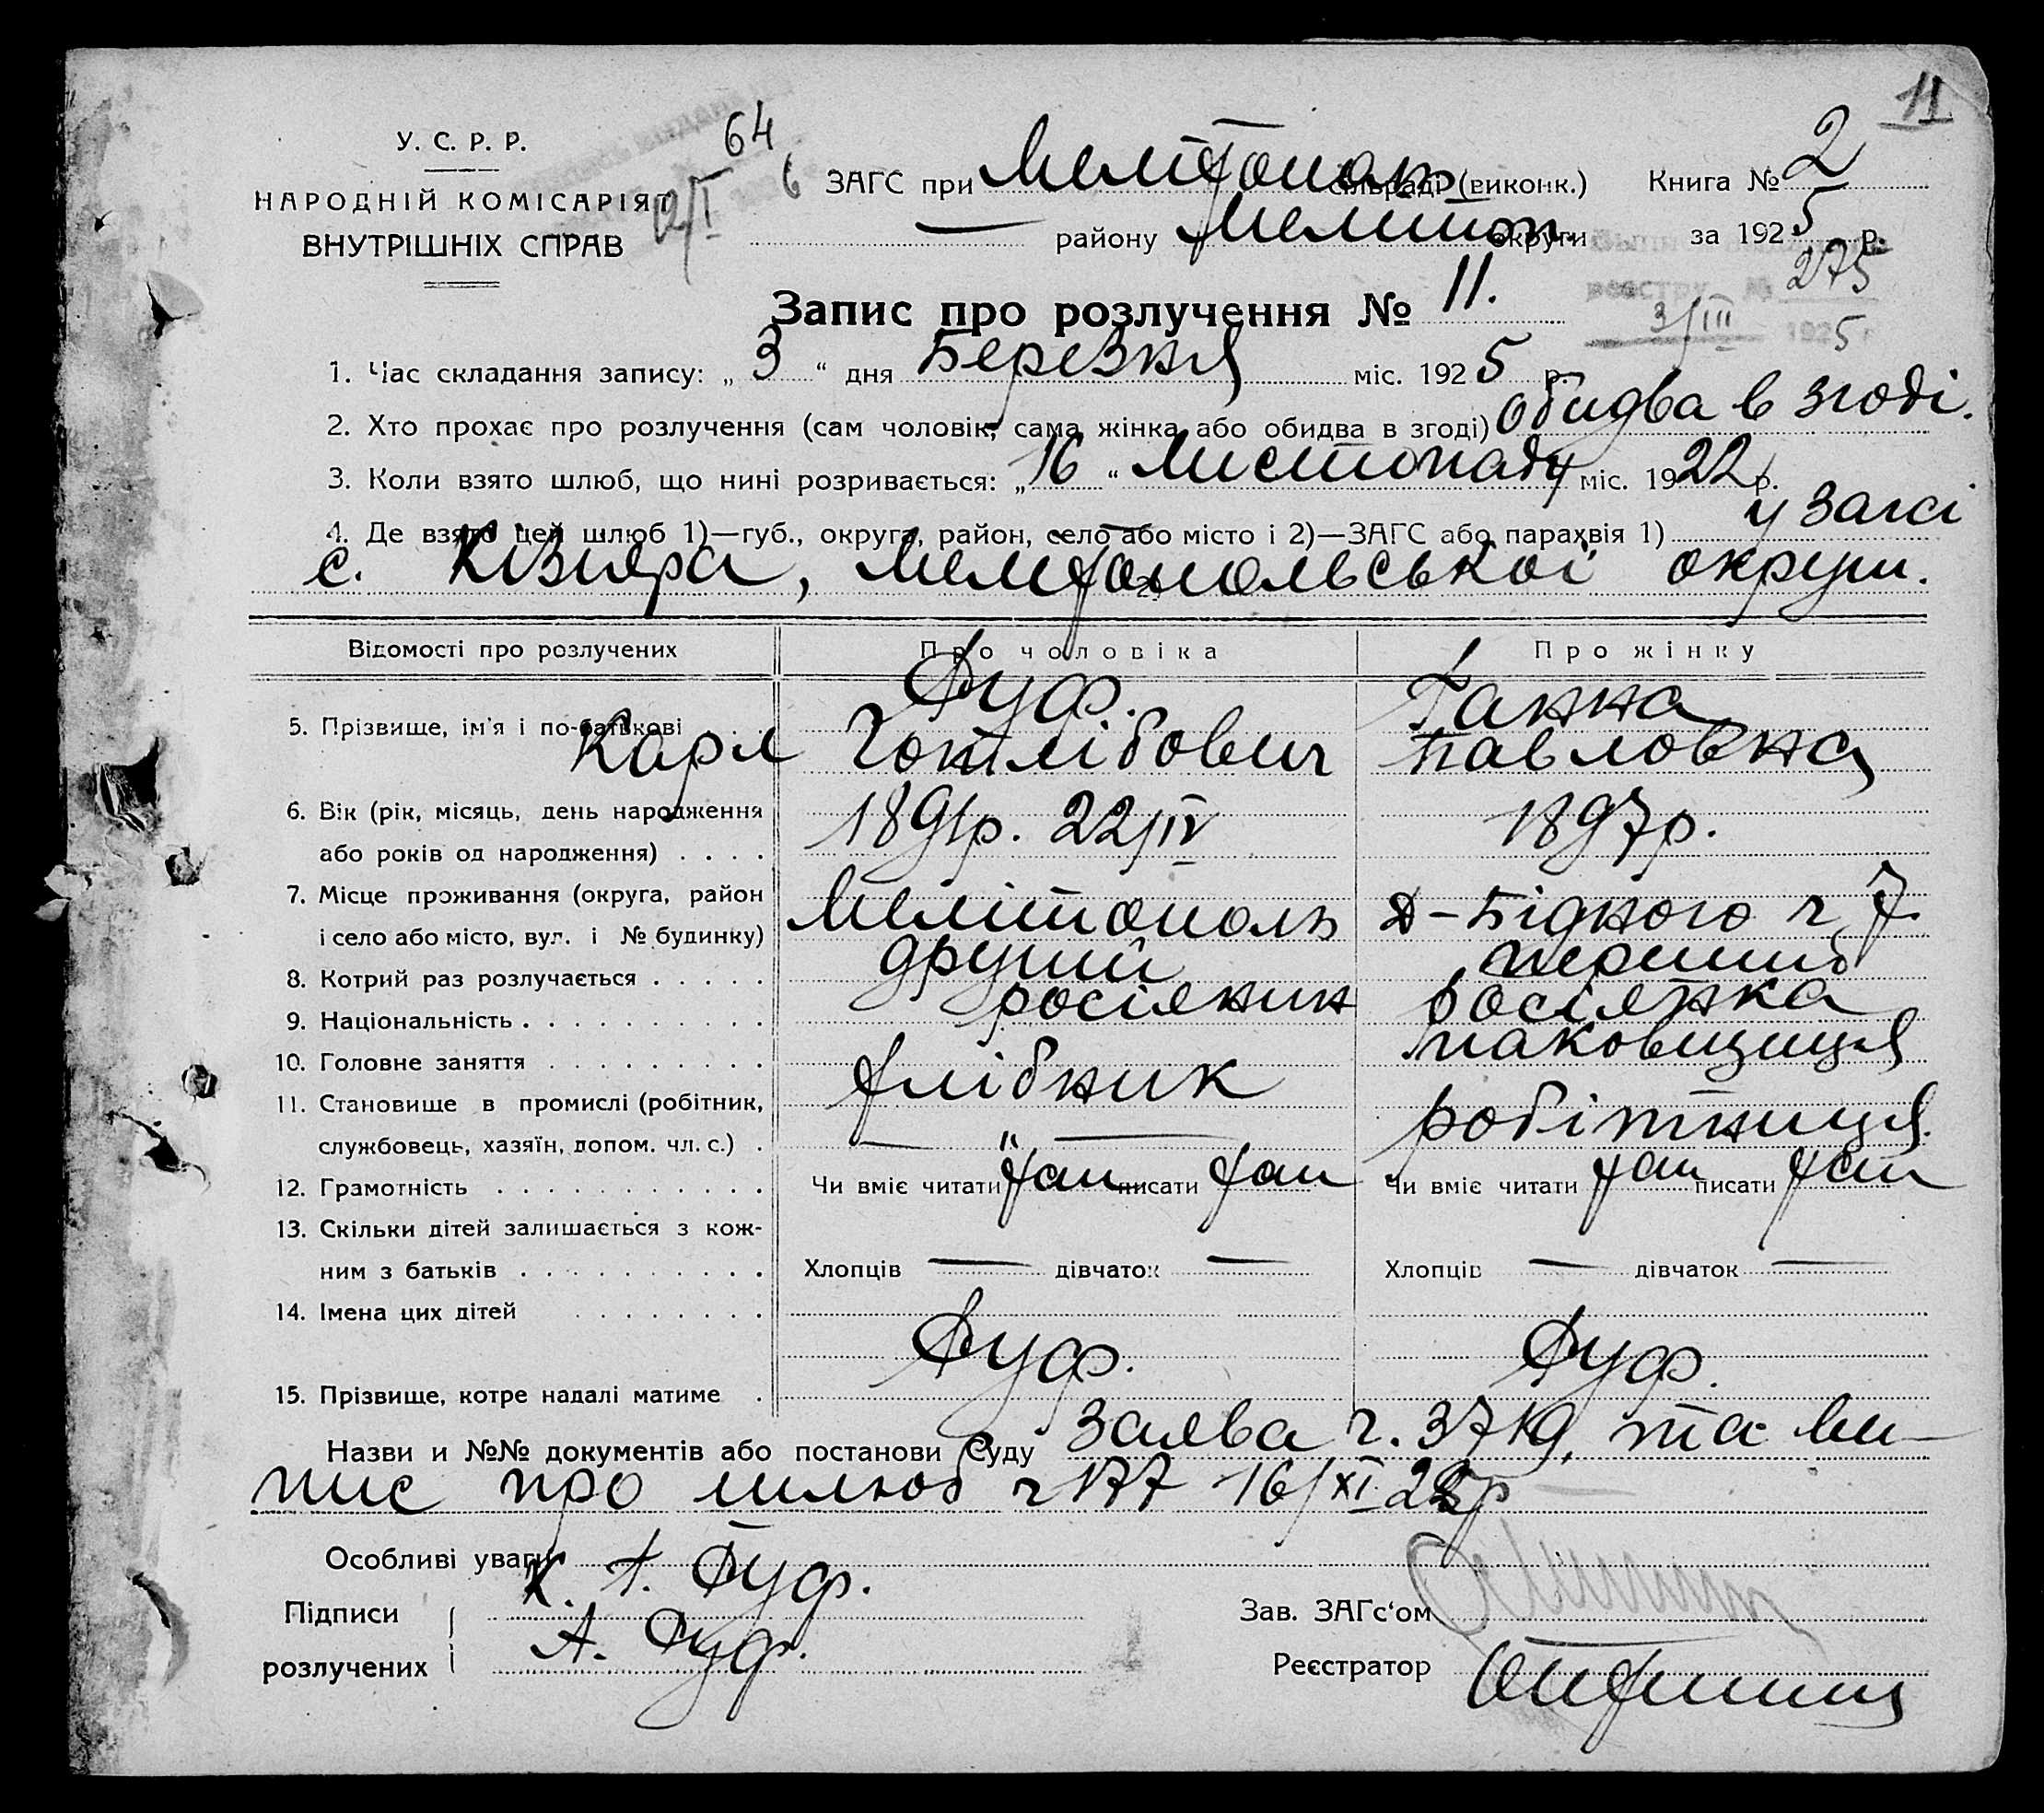 11
У. С. Р. Р.
НАРОДНІЙ КОМІСАРІЯТ
ВНУТРІШНІХ СПРАВ
64
ЗАГС при Мелітополь сільраді (виконк.) Книга № 2
— району Мелітоп. округи за 1925 р.
реєстру № 275
3/III 1925 г
Запис про розлучення № 11.
1. Час складання запису: „ 3 “ дня Березня міс. 1925 р.
2. Хто прохає про розлучення (сам чоловік, сама жінка або обидва в згоді) обидва в згоді.
3. Коли взято шлюб, що нині розривається: „ 16 “ Листопаду міс. 1922 р.
4. Де взято цей шлюб 1)—губ., округа, район, село або місто і 2)—ЗАГС або парахвія 1) у Загсі
с. Кізіяра, Мелітопольської округи.
Відомості про розлучених Про чоловіка Про жінку
5. Прізвище, ім'я і по-батькові Дуф. Ганна
Карл Готлібович Павловна
6. Вік (рік, місяць, день народження
або років од народження) . . . . 1891р. 22/IV 1897р.
7. Місце проживання (округа, район
і село або місто, вул. і № будинку) Мелітополь Д-Бідного ч 7.
8. Котрий раз розлучається . . . . . другий перший
9. Національність . . . . . . . . . . росіянин росіянка
10. Головне заняття . . . . . . . . . хлібник паковщиця
11. Становище в промислі (робітник,
службовець, хазяїн, допом. чл. с.) . — „ — робітниця.
12. Грамотність . . . . . . . . . . . Чи вміє читати так писати так Чи вміє читати так писати так
13. Скільки дітей залишається з кож-
ним з батьків . . . . . . . . . . Хлопців — дівчаток — Хлопців — дівчаток —
14. Імена цих дітей . . . . . . .
15. Прізвище, котре надалі матиме . Дуф. Дуф.
Назви и №№ документів або постанови Суду Заява ч. 37 та ви-
пис про шлюб ч 177 16/XI 22р
Особливі уваги
Підписи К. Г. Дуф. Зав. ЗАГс'ом
розлучених А. Дуф. Реєстратор